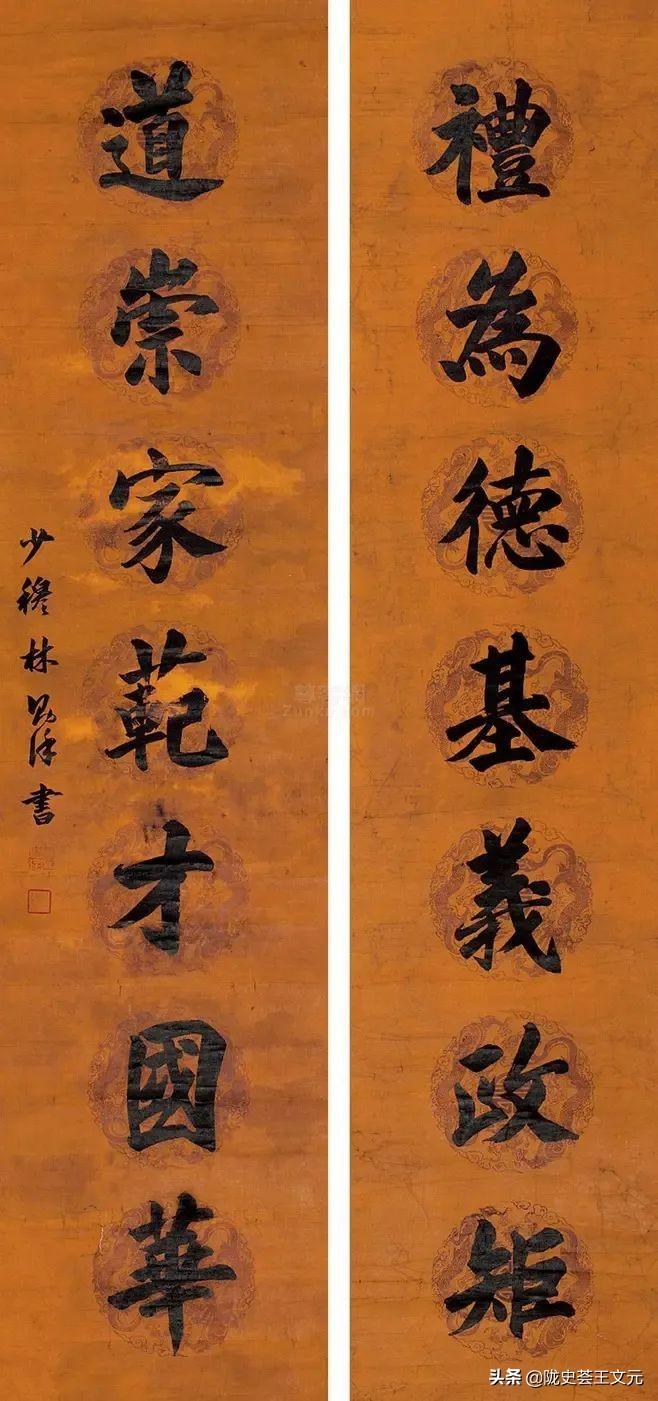 禮為德基義政矩
道崇家範才國華
少穆林則徐書
尊客網
Zunku.com
头条 @陇史荟王文元